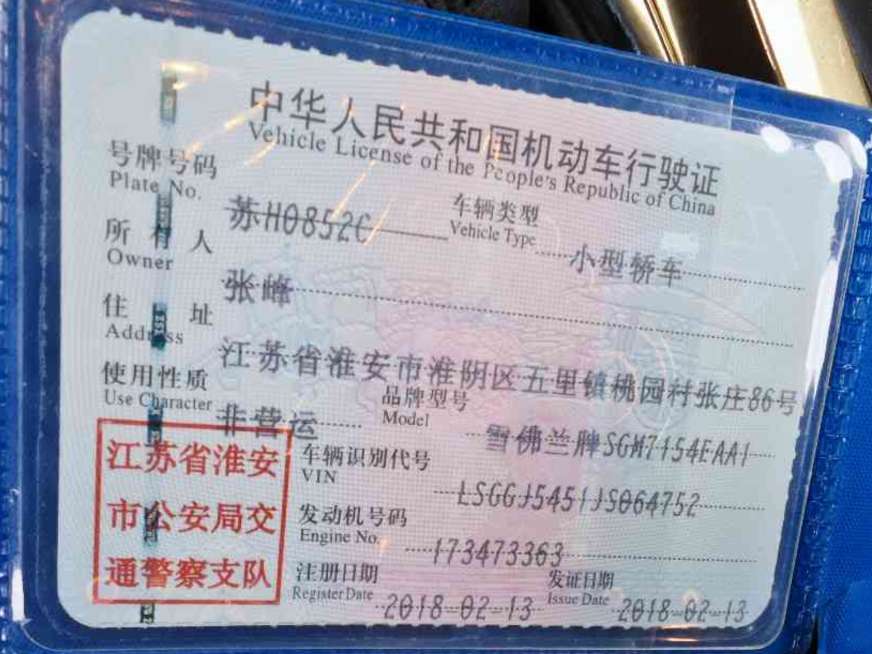 中华人民共和国机动车行驶证
Vehicle License of the People's Republic of China
号牌号码 苏H0852C 车辆类型 小型轿车
Plate No. Vehicle Type
所有人 张峰
Owner
住址 江苏省淮安市淮阴区五里镇桃园村张庄86号
Address
使用性质 非营运 品牌型号 雪佛兰牌SGM7154EAA1
Use Character Model
江苏省淮安
市公安局交
通警察支队
车辆识别代号 LSGGJ5451JS064752
VIN
发动机号码 173473363
Engine No.
注册日期 2018-02-13 发证日期 2018-02-13
Register Date Issue Date